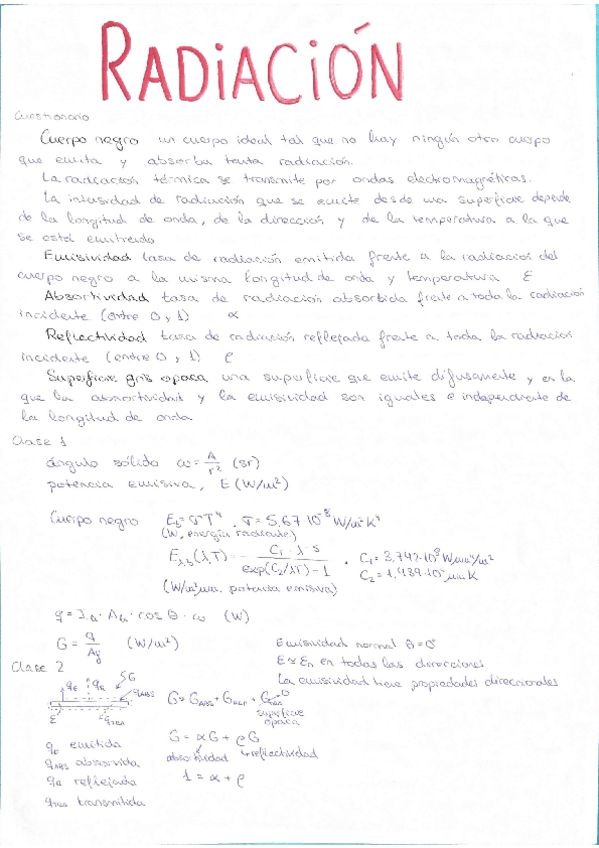 RADIACIÓN
Cuestionario
Cuerpo negro un cuerpo ideal tal que no hay ningún otro cuerpo
que emita y absorba tanta radiación.
La radiación térmica se transmite por ondas electromagnéticas.
La intensidad de radiación que se emite desde una superficie depende
de la longitud de onda, de la dirección y de la temperatura a la que
se está emitiendo
Emisividad tasa de radiación emitida frente a la radiación del
cuerpo negro a la misma longitud de onda y temperatura ε
Absortividad tasa de radiación absorbida frente a toda la radiación
incidente (entre 0 y 1) α
Reflectividad tasa de radiación reflejada frente a toda la radiación
incidente (entre 0 y 1) ρ
Superficie gris opaca una superficie que emite difusamente y en la
que la absortividad y la emisividad son iguales e independiente de
la longitud de onda
Clase 1
ángulo sólido ω = A/r² (sr)
potencia emisiva, E (W/m²)
Cuerpo negro E_b = σT⁴ . σ = 5,67·10⁻⁸ W/m²K⁴
(W, energía radiante)
E_λ,b (λ,T) = C₁·λ⁻⁵ / exp(C₂/λT) − 1 . C₁ = 3,742·10⁸ Wμm⁴/m²
C₂ = 1,439·10⁴ μm K
(W/m²μm, potencia emisiva)
q = I_a · A_a · cos θ · ω (W)
G = q/A_g (W/m²)
Emisividad normal θ = 0°
ε ≈ ε_n en todas las direcciones
La emisividad tiene propiedades direccionales
Clase 2
q_E q_R G q_ABS
E q_TRA
G = G_ABS + G_REF + G_TRA → 0
superficie
opaca
G = αG + ρG
absortividad reflectividad
1 = α + ρ
q_E emitida
q_ABS absorvida
q_R reflejada
q_TRAS transmitida